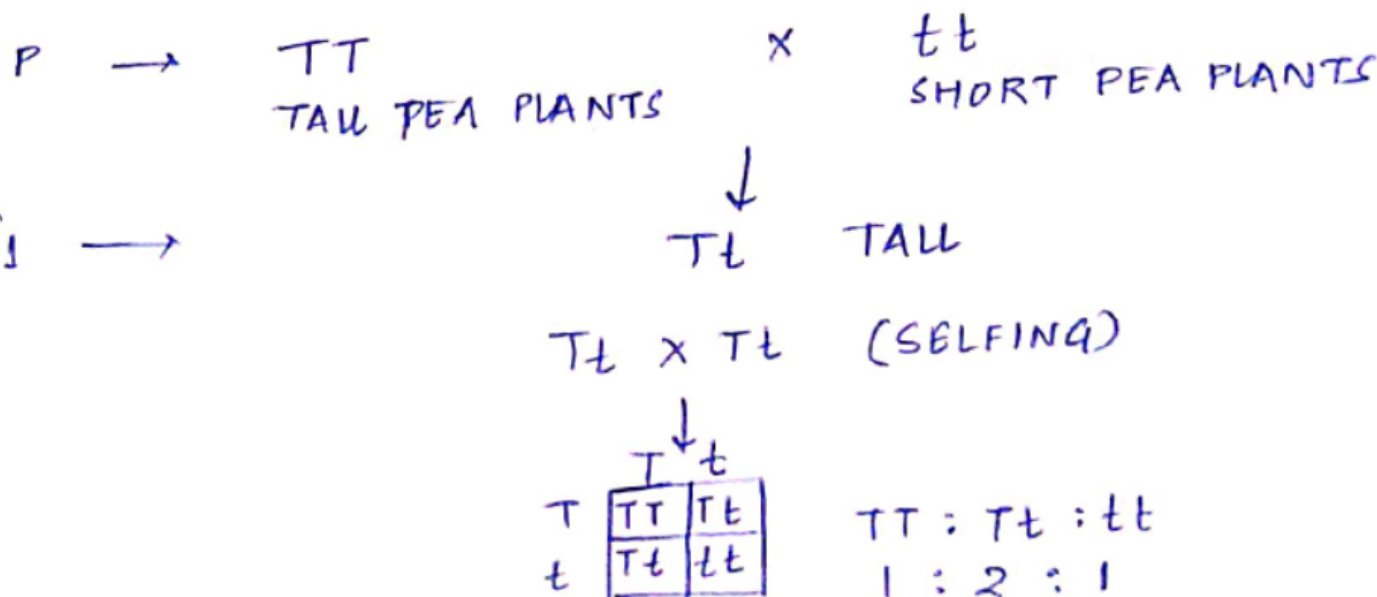 P → TT × tt
TALL PEA PLANTS SHORT PEA PLANTS
↓
1 → Tt TALL
Tt × Tt (SELFING)
↓
T t
T TT Tt TT : Tt : tt
t Tt tt 1 : 2 : 1